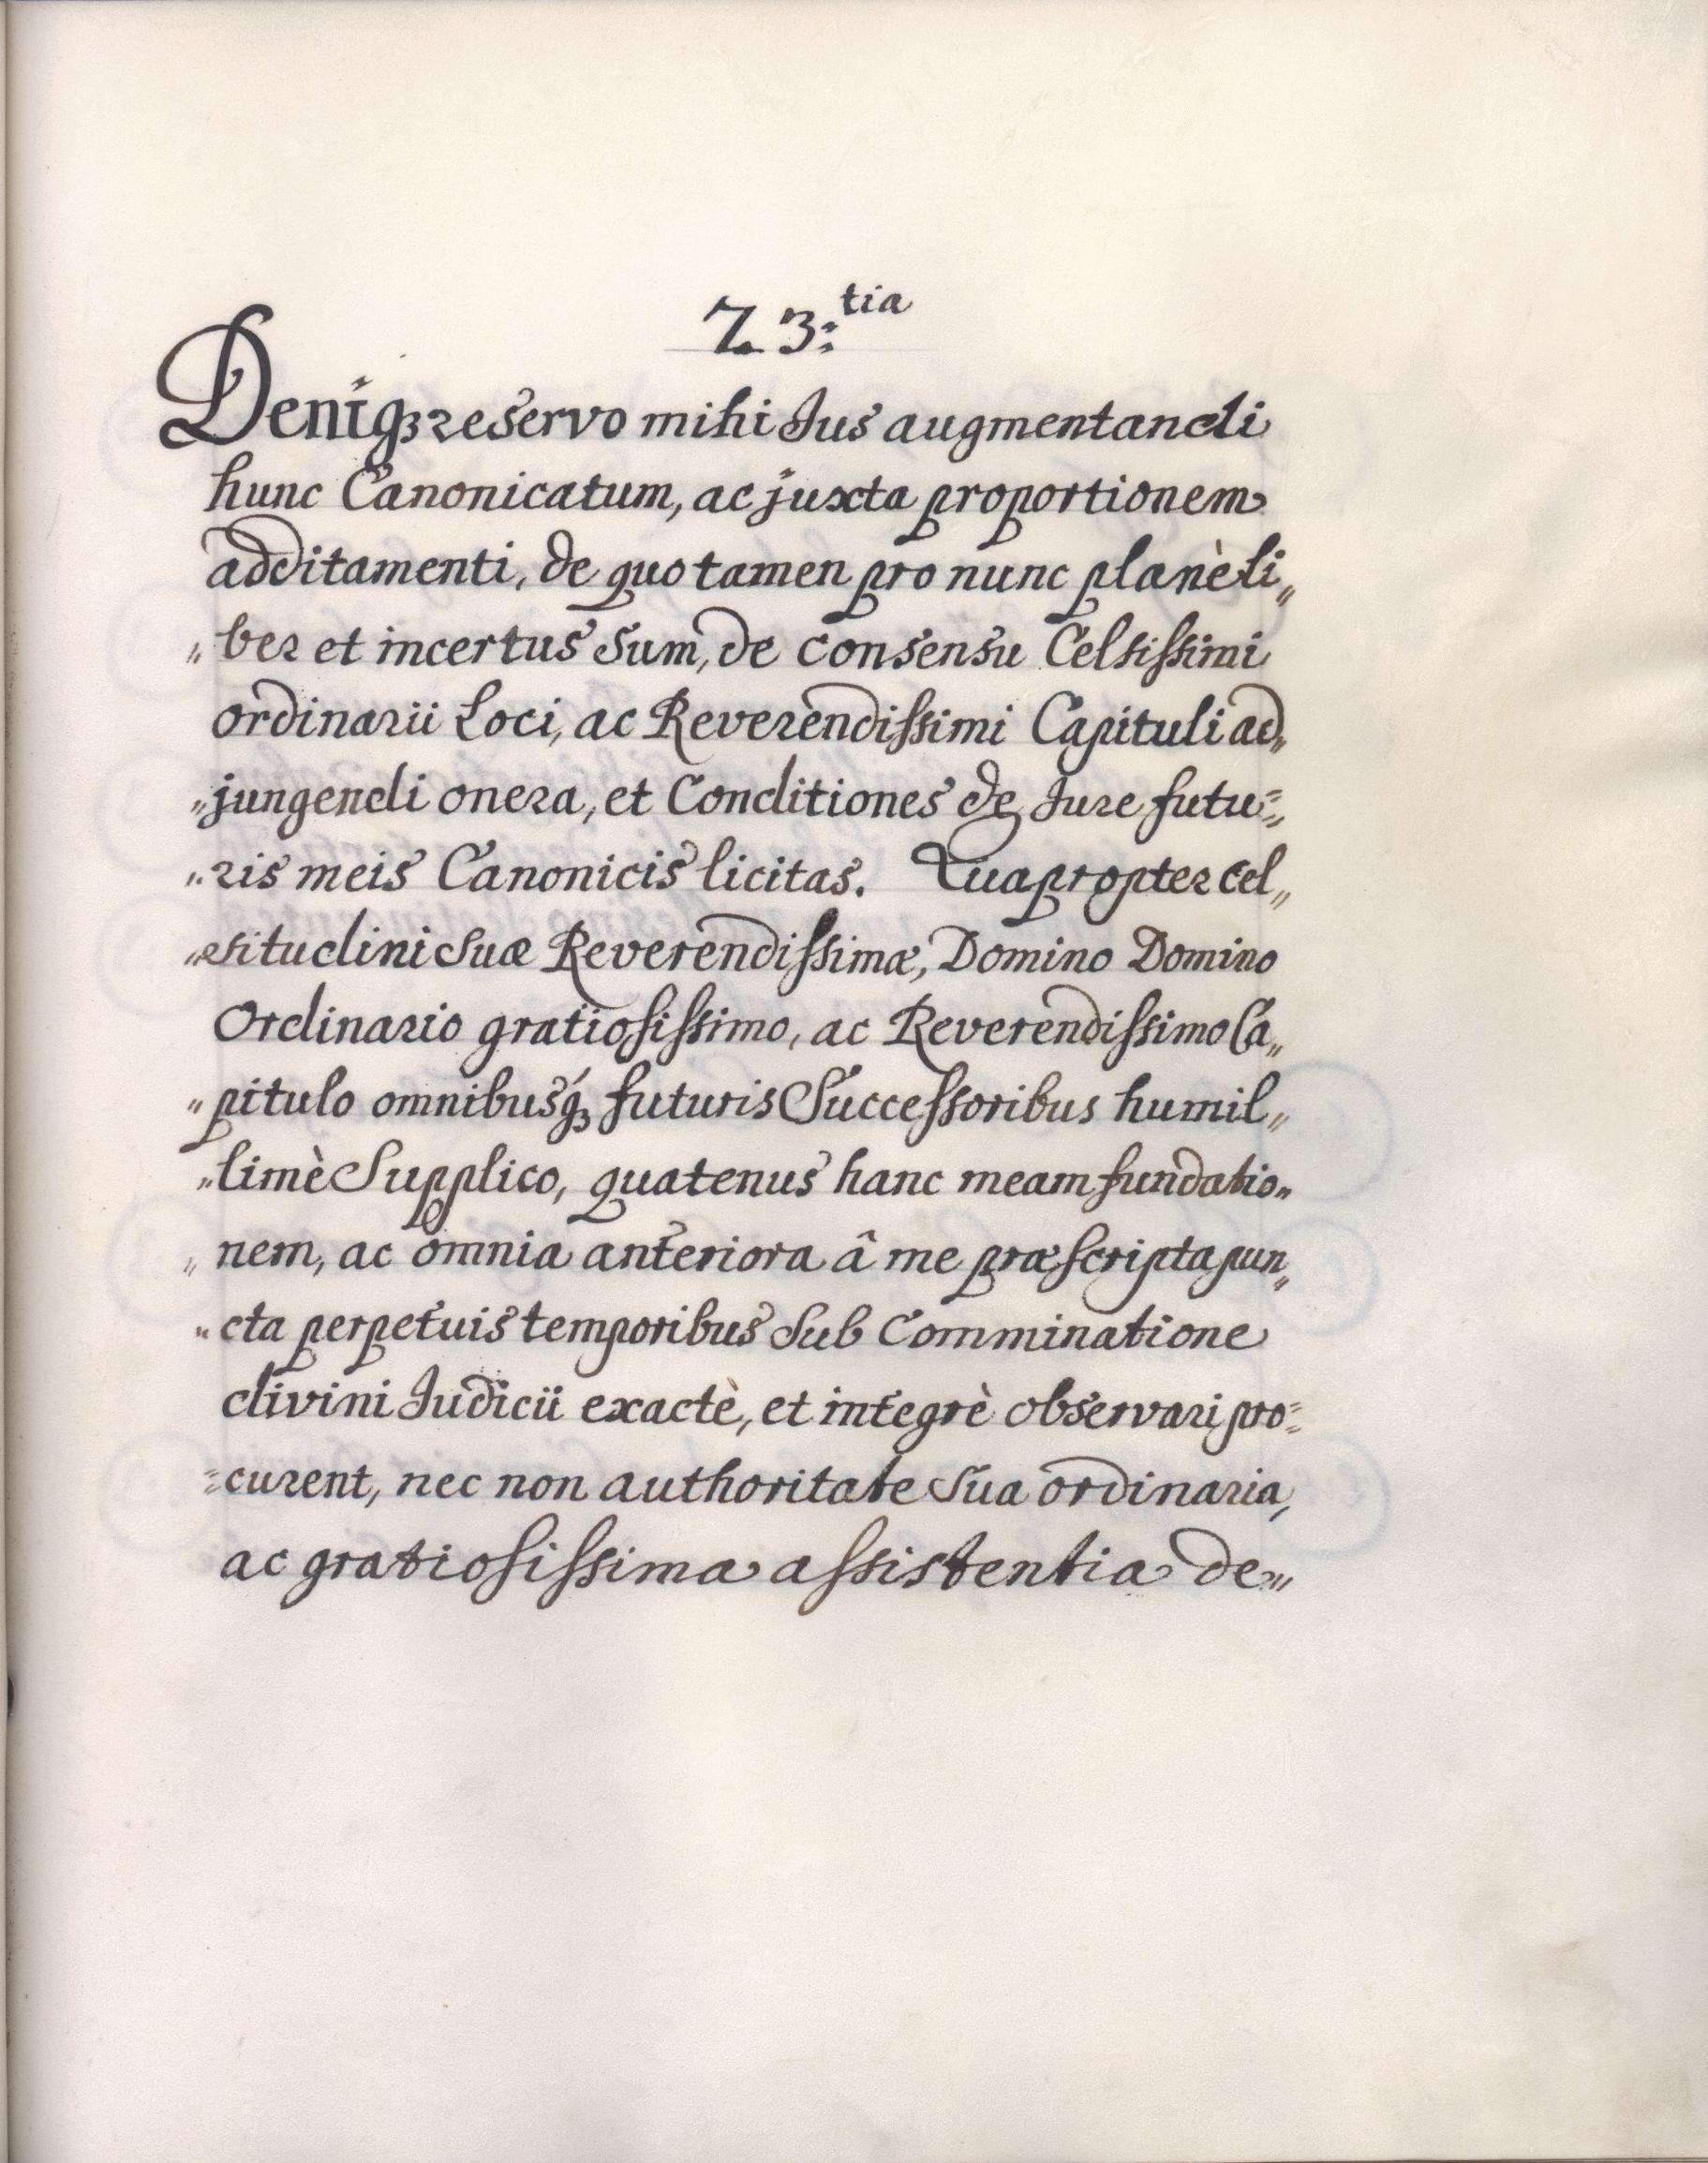 23:tia
Deniq₃ reservo mihi Jus augmentandi
hunc Canonicatum, ac juxta proportionem
additamenti, de quo tamen pro nunc planè li„
„ber et incertus sum, de consensu Celsissimi
ordinarii Loci, ac Reverendissimi Capituli ad„
„jungendi onera, et Conditiones de Jure futu=
„ris meis Canonicis licitas. Quapropter cel„
„situdini suæ Reverendissimæ, Domino Domino
Ordinario gratiosissimo, ac Reverendissimo Ca„
„pitulo omnibusq́₃ futuris Successoribus humil„
„limè Supplico, quatenus hanc meam fundatio„
„nem, ac omnia anteriora â me præscripta pun„
„cta perpetuis temporibus sub Comminatione
divini Judicii exactè, et integrè observari pro=
=curent, nec non authoritate sua ordinaria,
ac gratiosissima assistentia de„